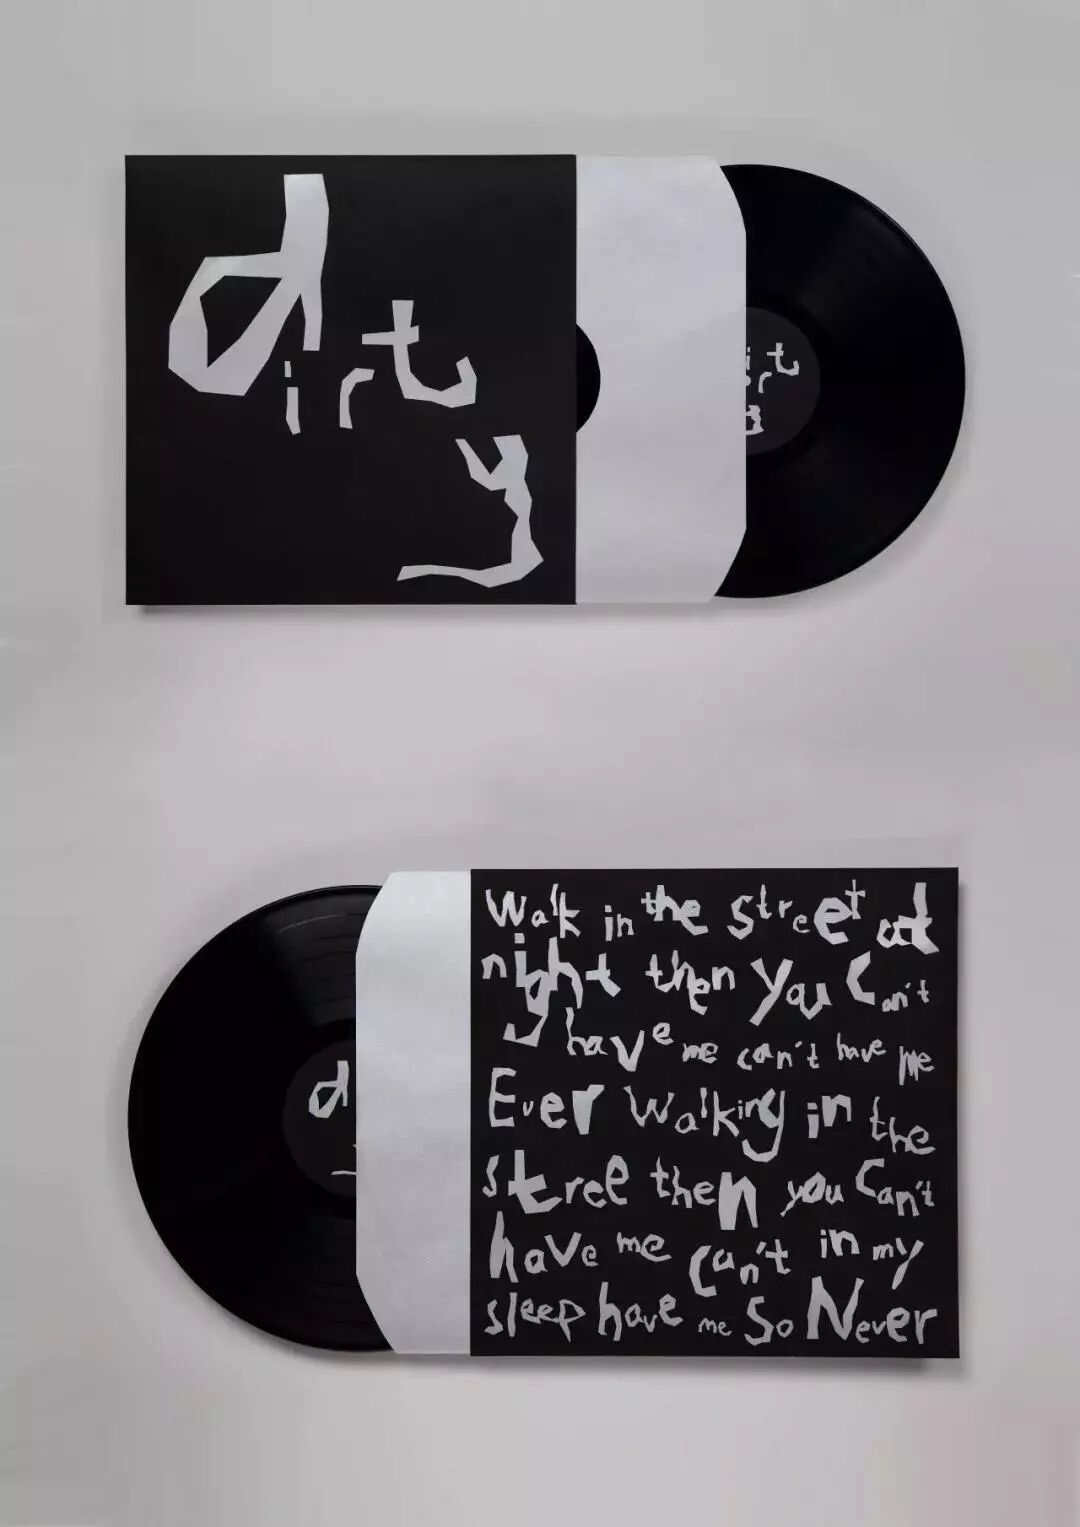 dirty
Walk in the street at
night then you can't
have me can't have me
Ever walking in the
stree then you can't
have me can't in my
sleep have me So Never
d